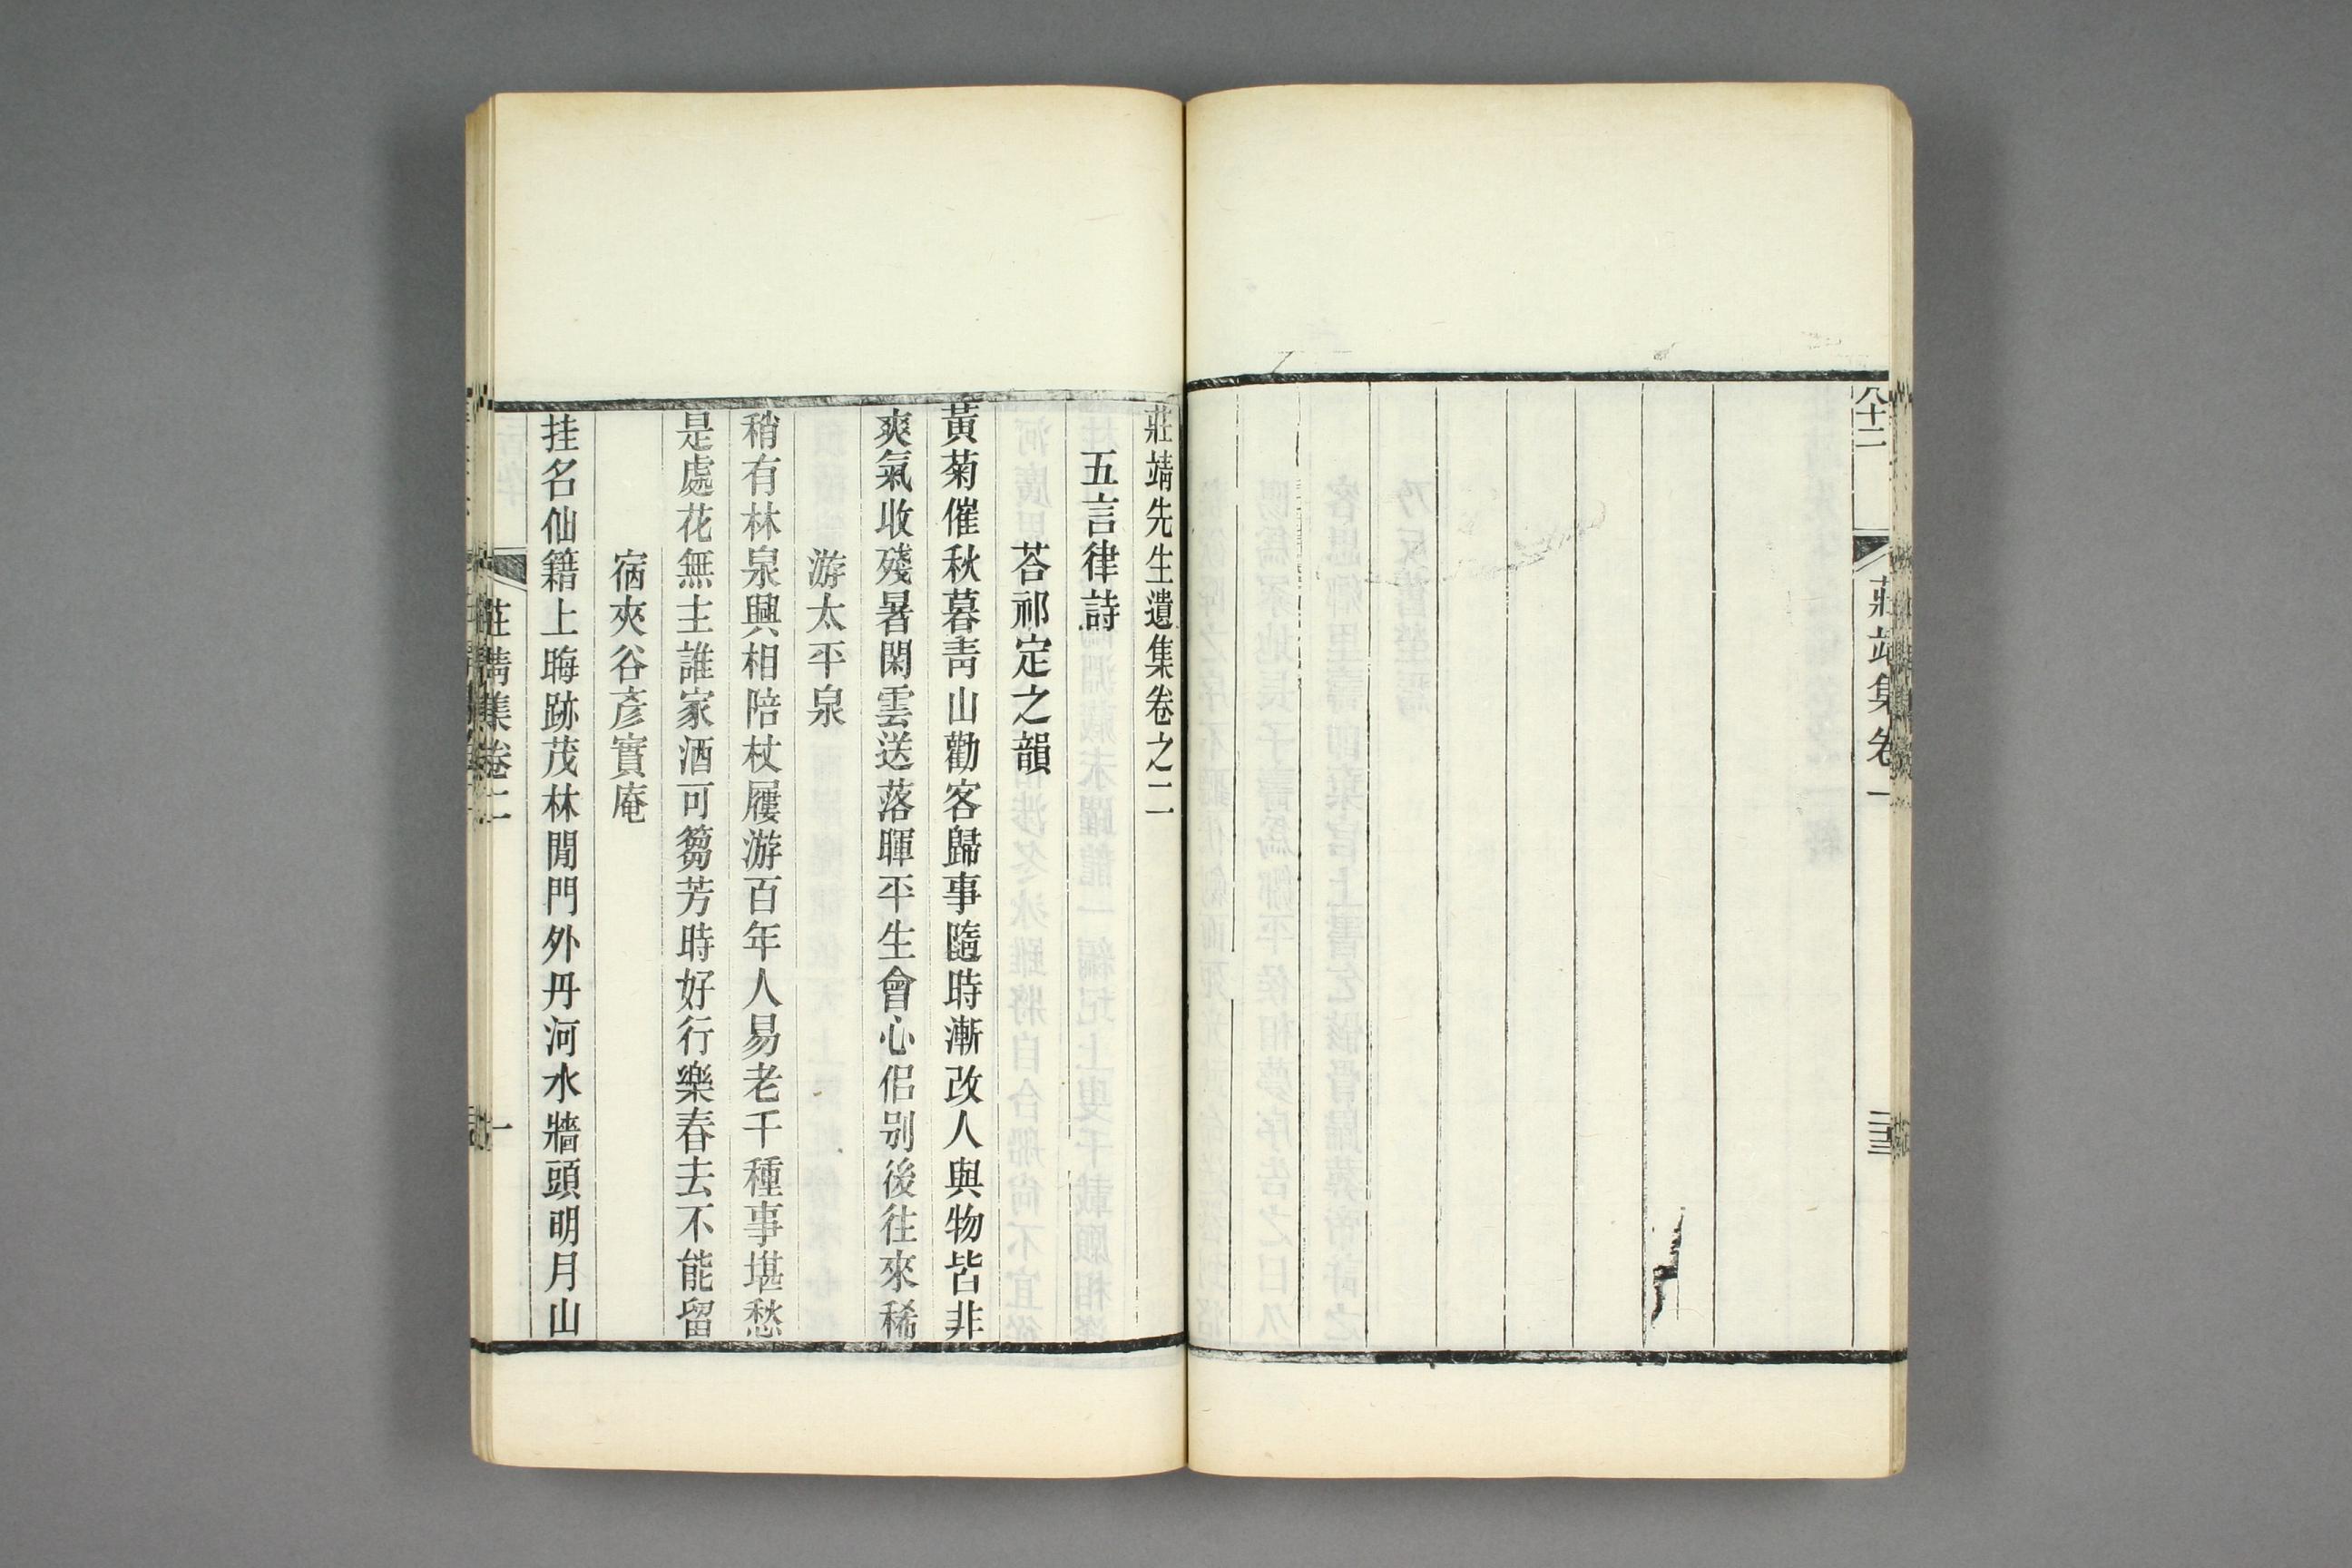 八十二
莊靖集卷一
三十三
莊靖先生遺集卷之二
五言律詩
荅祁定之韻
黃菊催秋暮靑山勸客歸事隨時漸改人與物皆非
爽氣收殘暑閑雲送落暉平生會心侶别後往來稀
游太平泉
稍有林泉興相陪杖屨游百年人易老千種事堪愁
是處花無主誰家酒可篘芳時好行樂春去不能留
宿夾谷彥實庵
挂名仙籍上晦跡茂林閒門外丹河水牆頭明月山
莊靖集卷二
一